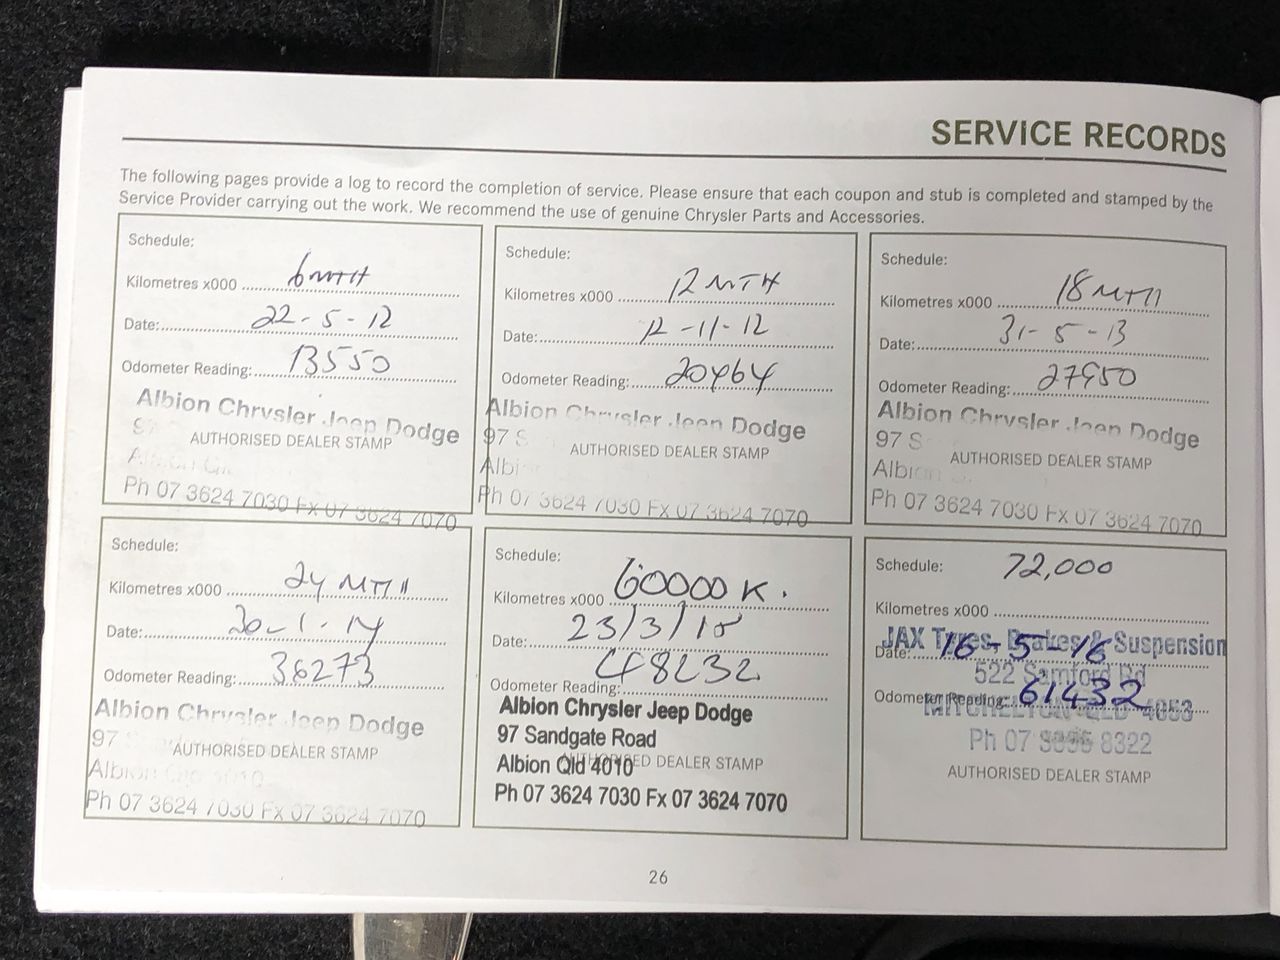 SERVICE RECORDS
The following pages provide a log to record the completion of service. Please ensure that each coupon and stub is completed and stamped by the
Service Provider carrying out the work. We recommend the use of genuine Chrysler Parts and Accessories.
Schedule:
Kilometres x000 6MTH
Date: 22-5-12
Odometer Reading: 13550
Albion Chrysler Jeep Dodge
97 S
AUTHORISED DEALER STAMP
Albion
Ph 07 3624 7030 Fx 07 3624 7070
Schedule:
Kilometres x000 12 MTH
Date: 12-11-12
Odometer Reading: 20464
Albion Chrysler Jeep Dodge
97 S
AUTHORISED DEALER STAMP
Albi
Ph 07 3624 7030 Fx 07 3624 7070
Schedule:
Kilometres x000 18 MTH
Date: 31-5-13
Odometer Reading: 27950
Albion Chrysler Jeep Dodge
97 S
AUTHORISED DEALER STAMP
Albion
Ph 07 3624 7030 Fx 07 3624 7070
Schedule:
Kilometres x000 24 MTH
Date: 20-1-14
Odometer Reading: 36273
Albion Chrysler Jeep Dodge
97
AUTHORISED DEALER STAMP
Albion Qld 4010
Ph 07 3624 7030 Fx 07 3624 7070
Schedule:
Kilometres x000 60000 K.
Date: 23/3/15
Odometer Reading: 48232
Albion Chrysler Jeep Dodge
97 Sandgate Road
Albion Qld 4010
AUTHORISED DEALER STAMP
Ph 07 3624 7030 Fx 07 3624 7070
Schedule: 72,000
Kilometres x000
JAX Tyres, Brakes & Suspension
Date: 16-5-16
522 Samford Rd
Odometer Reading: 61432
MITCHELTON QLD 4053
Ph 07 8322
AUTHORISED DEALER STAMP
26